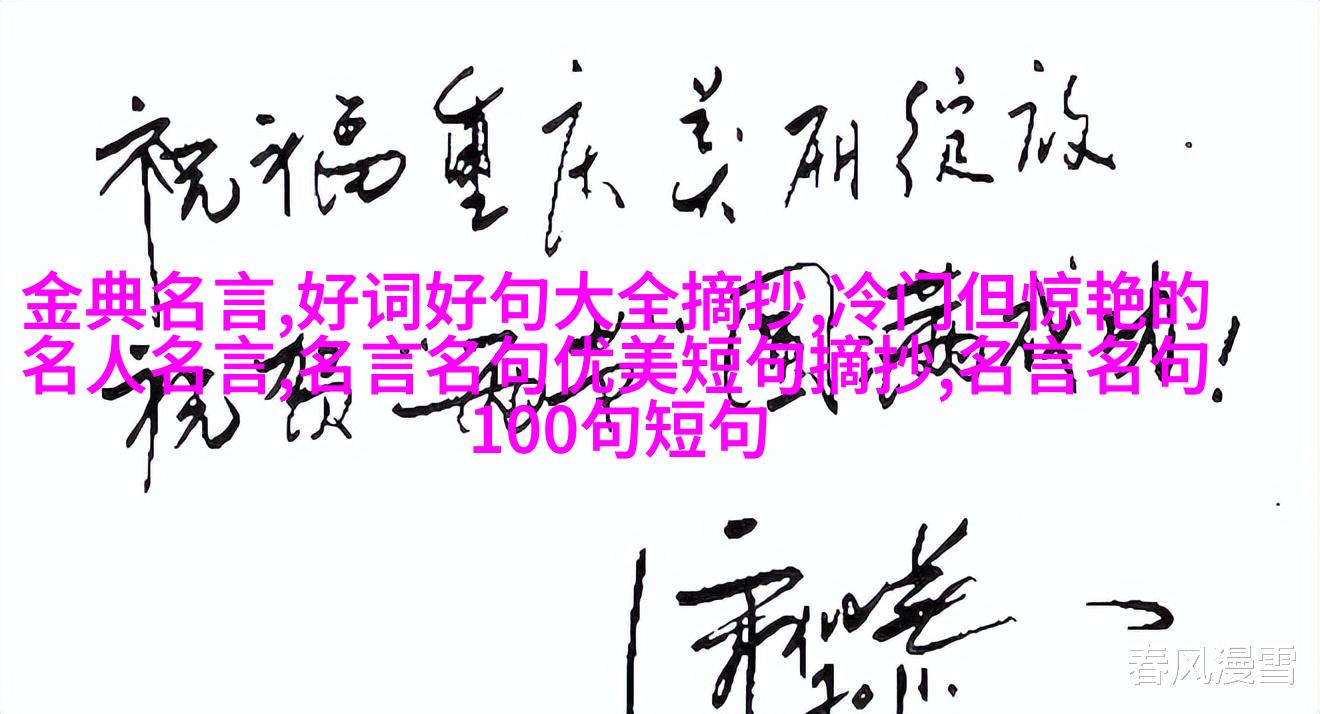 祝福重庆美丽绽放.
金典名言,好词好句大全摘抄,冷门但惊艳的
名人名言,名言名句优美短句摘抄,名言名句
100句短句
祝贺
2011.
春风漫雪